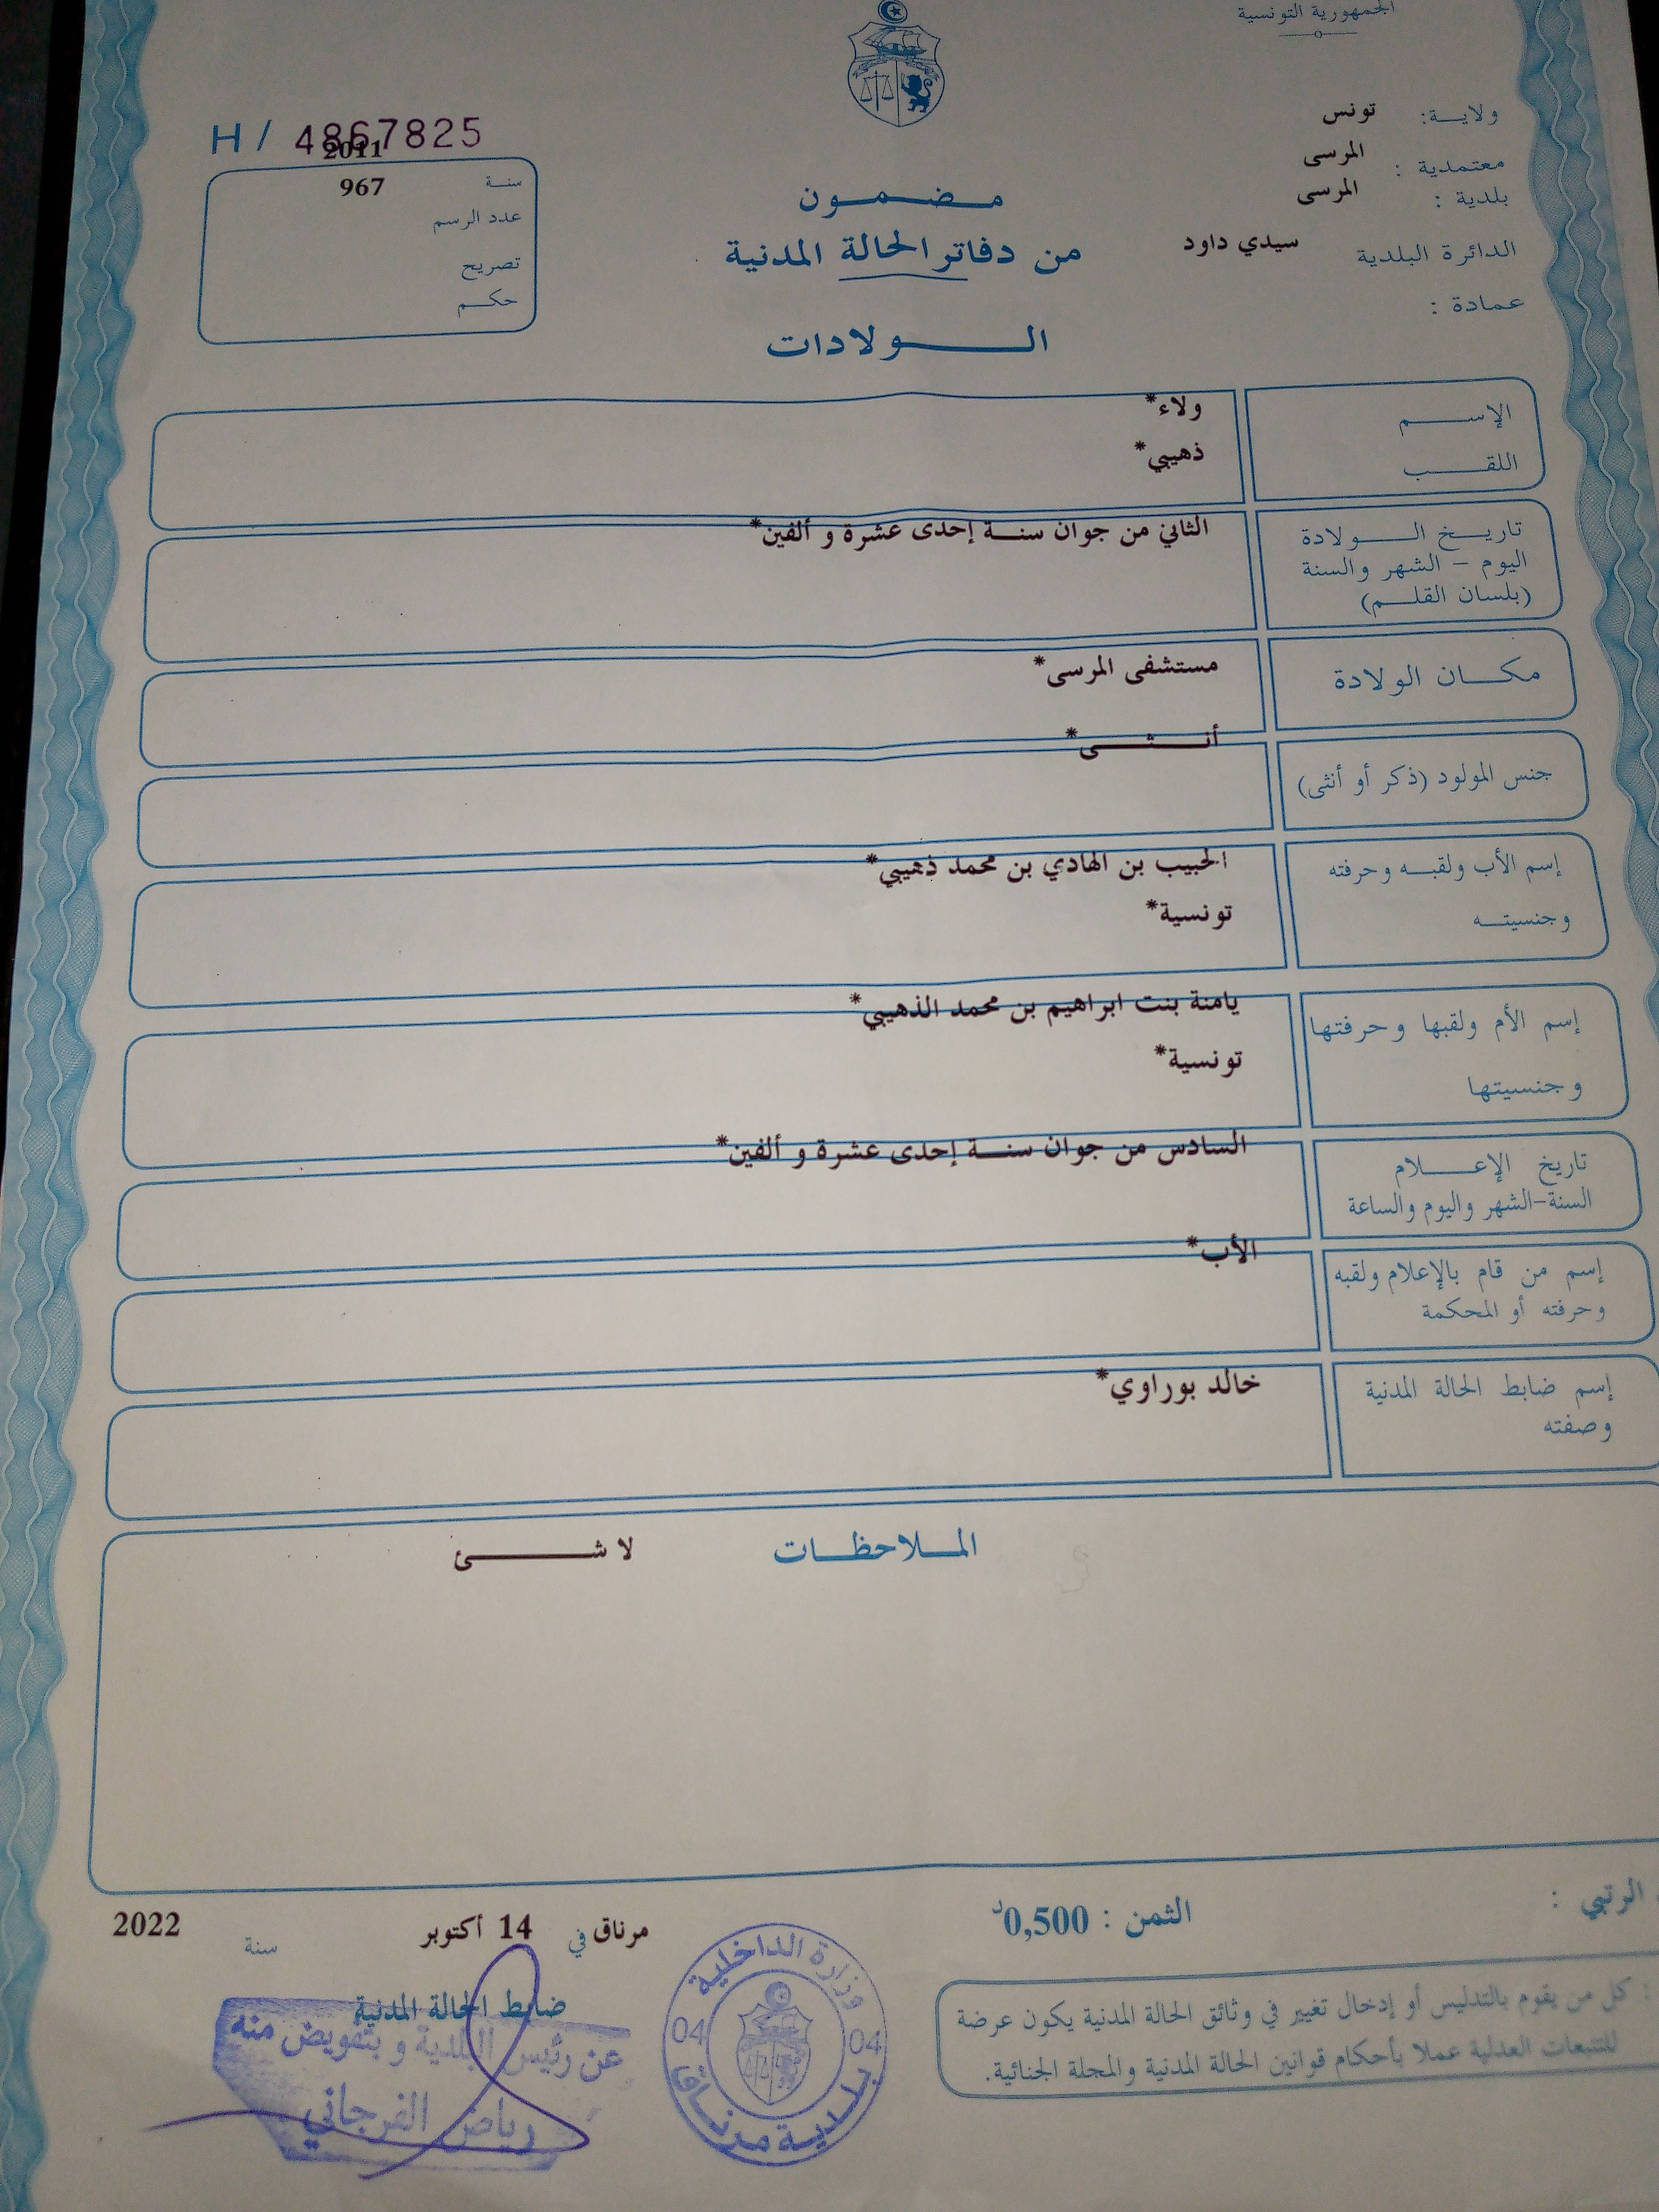 الجمهورية التونسية
ولاية: تونس
معتمدية : المرسى
بلدية : المرسى
الدائرة البلدية سيدي داود
عمادة :
H / 4867825
سنة 2011
عدد الرسم 967
تصريح
حكم
مضمون
من دفاتر الحالة المدنية
الولادات
الإسم ولاء*
اللقب ذهيبي*
تاريخ الولادة الثاني من جوان سنة إحدى عشرة و ألفين*
اليوم - الشهر والسنة
(بلسان القلم)
مكان الولادة مستشفى المرسى*
جنس المولود (ذكر أو أنثى) أنثى*
إسم الأب ولقبه وحرفته الحبيب بن الهادي بن محمد ذهيبي*
وجنسيته تونسية*
إسم الأم ولقبها وحرفتها يامنة بنت ابراهيم بن محمد الذهيبي*
وجنسيتها تونسية*
تاريخ الإعلام السادس من جوان سنة إحدى عشرة و ألفين*
السنة-الشهر واليوم والساعة
إسم من قام بالإعلام ولقبه الأب*
وحرفته أو المحكمة
إسم ضابط الحالة المدنية خالد بوراوي*
وصفته
الملاحظات لا شئ
الرتبي :
الثمن : 0,500د
مرناق في 14 أكتوبر سنة 2022
: كل من يقوم بالتدليس أو إدخال تغيير في وثائق الحالة المدنية يكون عرضة
للتتبعات العدلية عملا بأحكام قوانين الحالة المدنية والمجلة الجنائية.
وزارة الداخلية
04 04
بلدية مرناق
ضابط الحالة المدنية
عن رئيس البلدية و بتفويض منه
رياض الفرجاني